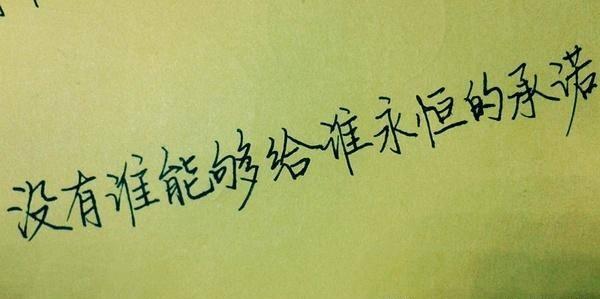 没有谁能够给谁永恒的承诺